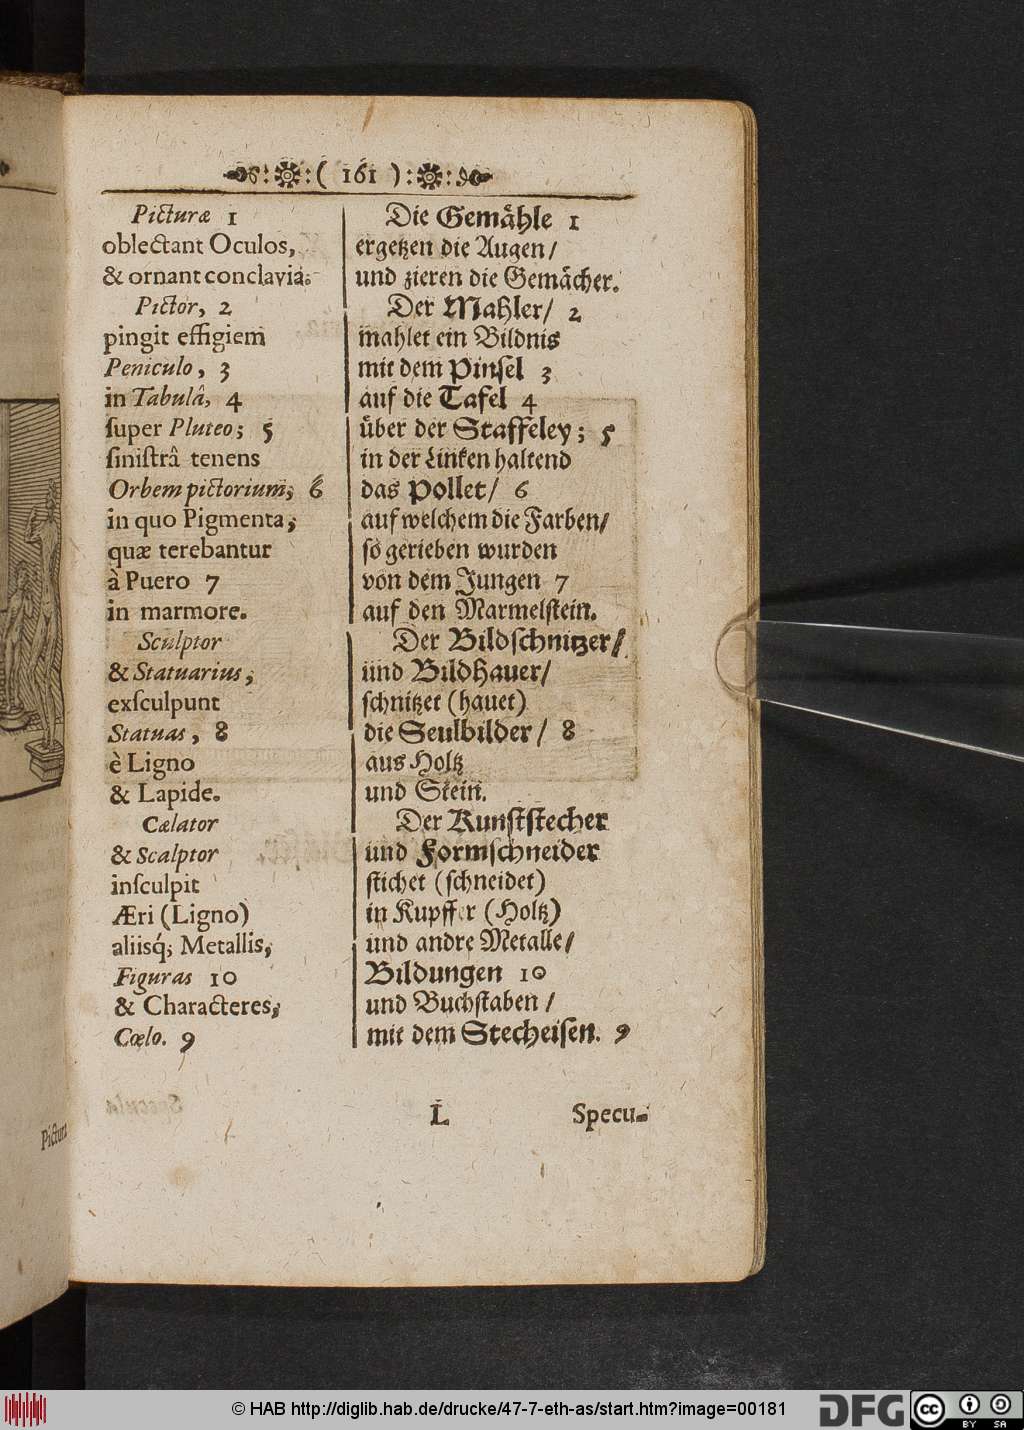 ( 161 )
Picturæ 1
oblectant Oculos,
& ornant conclavia.
Pictor, 2
pingit effigiem
Peniculo, 3
in Tabulâ, 4
ſuper Pluteo; 5
ſiniſtrâ tenens
Orbem pictorium, 6
in quo Pigmenta,
quæ terebantur
à Puero 7
in marmore.
Sculptor
& Statuarius,
exſculpunt
Statuas, 8
è Ligno
& Lapide.
Cælator
& Scalptor
inſculpit
Æri (Ligno)
aliisq́; Metallis,
Figuras 10
& Characteres,
Cœlo. 9
Die Gemåhle 1
ergetzen die Augen/
und zieren die Gemåcher.
Der Mahler/ 2
mahlet ein Bildnis
mit dem Pinſel 3
auf die Tafel 4
ůber der Staffeley; 5
in der Linken haltend
das Pollet/ 6
auf welchem die Farben/
ſo gerieben wurden
von dem Jungen 7
auf den Marmelſtein.
Der Bildſchnitzer/
und Bildhauer/
ſchnitzet (hauet)
die Seulbilder/ 8
aus Holtz
und Stein.
Der Kunſtſtecher
und Formſchneider
ſtichet (ſchneidet)
in Kupffer (Holtz)
und andre Metalle/
Bildungen 10
und Buchſtaben/
mit dem Stecheiſen. 9
L Specu-
Pictura
© HAB http://diglib.hab.de/drucke/47-7-eth-as/start.htm?image=00181
DFG
cc BY SA